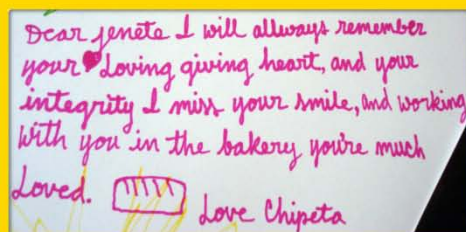 Dear Jenete I will allways remember
your Loving giving heart, and your
integrity I miss your smile, and working
with you in the bakery you're much
Loved.
Love Chipeta